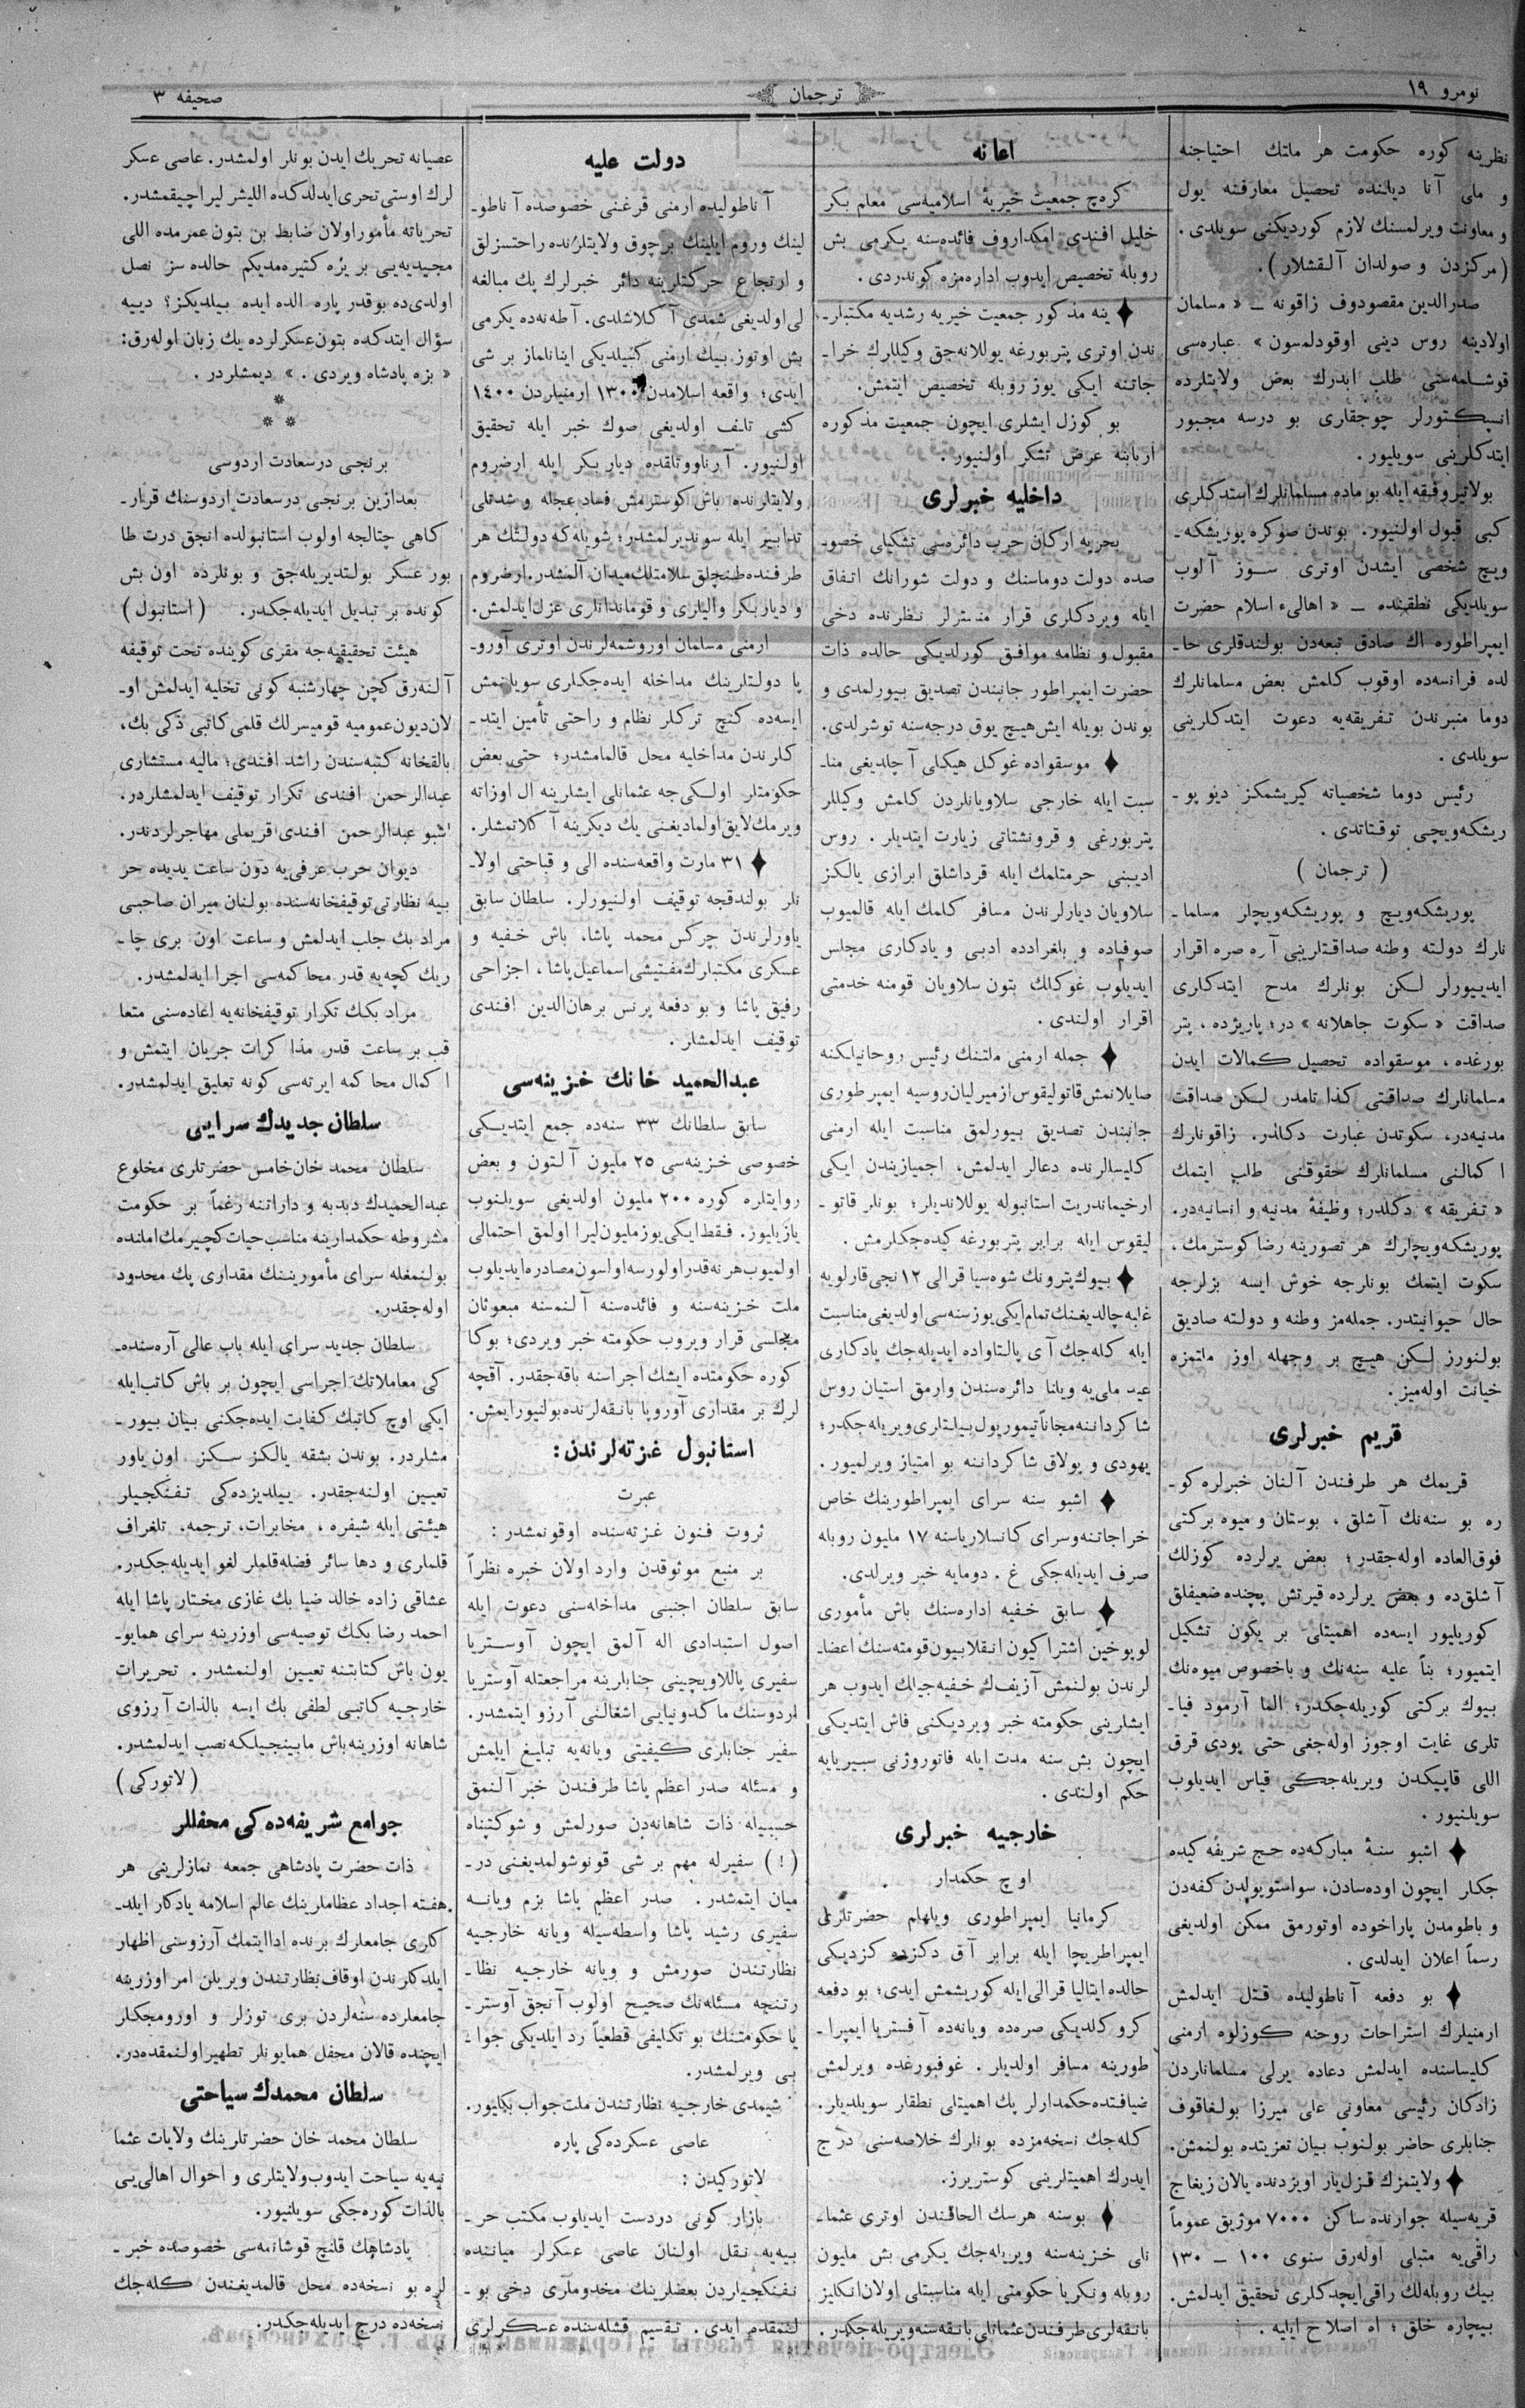 نومرو ١٩
ترجمان
صحيفه ٣
نظرينه كوره حكومت هر ملتك احتياجنه
و ملى آنا ديلنده تحصيل معارفنه يول
و معاونت ويرلمسنك لازم كورديكنى سويلدى.
(مركزدن و صولدان آلقشلار).
صدرالدين مقصودوف زاقونه ــ « مسلمان
اولادينه روس دينى اوقودلمسون » عباره‌سى
قوشلمه‌سنى طلب ايدرك بعض ولايتلرده
انسپكتورلر چوجقلرى بو درسه مجبور
ايتدكلرينى سويليور.
بولاتيروفقه ايله بو ماده مسلمانلرك استدكلرى
كبى قبول اولنيور. بوندن صوكره پوريشكه‌ـ
ويچ شخصى ايشدن اوترى سوز آلوب
سويلديكى نطقنده ــ « اهالىء اسلام حضرت
ايمپراطوره اك صادق تبعه‌دن بولندقلرى حا‌ـ
لده فرانسه‌ده اوقوب كلمش بعض مسلمانلرك
دوما منبرندن تفريقه‌يه دعوت ايتدكلرينى
سويلدى.
رئيس دوما شخصياته كيريشمكز ديو پو‌ـ
ريشكه‌ويچى توقتاتدى.
( ترجمان )
پوريشكه‌ويچ و پوريشكه‌ويچلر مسلما‌ـ
نلرك دولته وطنه صداقتلرينى آره صره اقرار
ايدييورلر لكن بونلرك مدح ايتدكلرى
صداقت « سكوت جاهلانه » در؛ پاريژده، پتر
بورغده، موسقواده تحصيل كمالات ايدن
مسلمانلرك صداقتى كذا تامدر لكن صداقت
مدنيه‌در، سكوتدن عبارت دكلدر. زاقونلرك
اكمالنى مسلمانلرك حقوقنى طلب ايتمك
« تفريقه » دكلدر؛ وظيفۀ مدنيه و انسانيه‌در.
پوريشكه‌ويچلرك هر تصورينه رضا كوسترمك،
سكوت ايتمك بونلرجه خوش ايسه بزلرجه
حال حيوانيتدر. جمله‌مز وطنه و دولته صاديق
بولنورز لكن هيچ بر وجهله اوز ملتمزه
خيانت اوله‌ميز.
قريم خبرلرى
قريمك هر طرفندن آلنان خبرلره كو‌ـ
ره بو سنه‌نك آشلق، بوستان و ميوه بركتى
فوق‌العاده اوله‌جقدر؛ بعض يرلرده كوزلك
آشلق‌ده و بعض يرلرده قيرتش پچنده ضعيفلق
كوريليور ايسه‌ده اهميتلى بر يكون تشكيل
ايتميور؛ بناً عليه سنه‌نك و باخصوص ميوه‌نك
بيوك بركتى كوريله‌جكدر؛ الما آرمود فيا‌ـ
تلرى غايت اوجوز اوله‌جغى حتى پودى قرق
اللى قاپيكدن ويريله‌جكى قياس ايديلوب
سويلنيور.
اشبو سنۀ مباركه‌ده حج شريفه كيده
جكلر ايچون اوده‌سادن، سواستوپولدن كفه‌دن
و باطومدن پاراخوده اوتورمق ممكن اولديغى
رسماً اعلان ايدلدى.
بو دفعه آناطوليده قتل ايدلمش
ارمنيلرك استراحات روحنه كوزلوه ارمنى
كليساسنده ايدلمش دعاده يرلى مسلمانلردن
زادكان رئيسى معاونى على ميرزا بولغاقوف
جنابلرى حاضر بولنوب بيان تعزيتده بولنمش.
ولايتمزك قزل‌يار اويزدنده يالان زيغاج
قريه‌سيله جوارنده ساكن ٧٠٠٠ موژيق عموماً
راقى‌يه مبتلى اوله‌رق سنوى ١٠٠ ــ ١٣٠
بيك روبله‌لك راقى ايچدكلرى تحقيق ايدلمش.
بيچاره خلق؛ اه اصلاح ايليه.
اعانه
كره‌چ جمعيت خيريۀ اسلاميه‌سى معلم بكر
خليل افندى امكداروف فائده‌سنه يكرمى بش
روبله تخصيص ايدوب اداره‌مزه كوندردى.
ينه مذكور جمعيت خيريه رشديه مكتبلر‌ـ
ندن اوترى پتربورغه يوللانه‌جق وكيللرك خرا‌ـ
جاتنه ايكى يوز روبله تخصيص ايتمش.
بو كوزل ايشلرى ايچون جمعيت مذكوره
اربابنه عرض تشكر اولنيور.
داخليه خبرلرى
بحريه اركان حرب دائره‌سى تشكيلى خصو‌ـ
صده دولت دوماسنك و دولت شورانك اتفاق
ايله ويردكلرى قرار منسترلر نظرنده دخى
مقبول و نظامه موافق كورلديكى حالده ذات
حضرت ايمپراطور جانبندن تصديق بيورلمدى و
بوندن بويله ايش هيچ يوق درجه‌سنه توشرلدى.
موسقواده غوكل هيكلى آچلديغى منا‌ـ
سبت ايله خارجى سلاويانلردن كلمش وكيللر
پتربورغى و قرونشتاتى زيارت ايتديلر. روس
اديبنى حرمتلمك ايله قرداشلق ابرازى يالكز
سلاويان ديارلرندن مسافر كلمك ايله قالميوب
صوفياده و بلغرادده ادبى و يادكارى مجلس
ايديلوب غوكلك بتون سلاويان قومنه خدمتى
اقرار اولندى.
جمله ارمنى ملتنك رئيس روحانيلكنه
صايلانمش قاتوليقوس ازميرليان روسيه ايمپرطورى
جانبندن تصديق بيورلمق مناسبت ايله ارمنى
كليسالرنده دعالر ايدلمش، اجميازيندن ايكى
ارخيماندريت استانبوله يوللانديلر؛ بونلر قاتو‌ـ
ليقوس ايله برابر پتربورغه كيده‌جكلرمش.
بيوك پترونك شوه‌سيا قرالى ١٢نجى قارلويه
غلبه چالديغنك تمام ايكى يوز سنه‌سى اولديغى مناسبت
ايله كله‌جك آى پالتاواده ايديله‌جك يادكارى
عيد ملى‌يه ويلنا دائره‌سندن وارمق استيان روس
شاكرداننه مجاناً تيمور يول بيلتلرى ويريله‌جكدر؛
يهودى و پولاق شاكرداننه بو امتياز ويرلميور.
اشبو سنه سراى ايمپراطورينك خاص
خراجاتنه و سراى كانسلارياسنه ١٧ مليون روبله
صرف ايديله‌جكى غ. دومايه خبر ويرلدى.
سابق خفيه اداره‌سنك باش مأمورى
لوپوخين اشتراكيون انقلابيون قومته‌سنك اعضا‌ـ
لرندن بولنمش آزيف‌ك خفيه‌جيلك ايدوب هر
ايشلرينى حكومته خبر ويرديكنى فاش ايتديكى
ايچون بش سنه مدت ايله قاتورژنى سيبريايه
حكم اولندى.
خارجيه خبرلرى
اوچ حكمدار
كرمانيا ايمپراطورى ويلهلم حضرتلرى
ايمپراطريچا ايله برابر آق دكزده كزديكى
حالده ايتاليا قرالى ايله كوريشمش ايدى؛ بو دفعه
كرو كلديكى صره‌ده ويانه‌ده آفستريا ايمپرا‌ـ
طورينه مسافر اولديلر. غوفبورغده ويرلمش
ضيافتده حكمدارلر پك اهميتلى نطقلر سويلديلر.
كله‌جك نسخه‌مزده بونلرك خلاصه‌سنى درج
ايدرك اهميتلرينى كوستريرز.
بوسنه هرسك الحاقندن اوترى عثما‌ـ
نلى خزينه‌سنه ويريله‌جك يكرمى بش مليون
روبله ونكريا حكومتى ايله مناسبتلى اولان انكليز
بانقه‌لرى طرفندن عثمانلى بانقه‌سنه ويريله‌جكدر.
دولت عليه
آناطوليده ارمنى قرغنى خصوصده آناطو‌ـ
لينك و روم ايلينك برچوق ولايتلرنده راحتسزلق
و ارتجاع حركتلرينه دائر خبرلرك پك مبالغه
لى اولديغى شمدى آكلاشلدى. آطنه‌ده يكرمى
بش اوتوز بيك ارمنى كسيلديكى اينانلماز بر شى
ايدى؛ واقعه اسلامدن ١٣٠٠ ارمنيلردن ١٤٠٠
كشى تلف اولديغى صوك خبر ايله تحقيق
اولنيور. آرناووتلقده ديار بكر ايله ارضروم
ولايتلرنده باش كوسترمش فساد عجله و شدتلى
تدابير ايله سوندرلمشدر؛ شويله‌كه دولتك هر
طرفنده طنچلق سلامتلك ميدان آلمشدر. ارضروم
و ديار بكر واليلرى و قومانداانلرى عزل ايدلمش.
ارمنى مسلمان اوروشمه‌لرندن اوترى آورو‌ـ
پا دولتلرينك مداخله ايده‌جكلرى سويلنمش
ايسه‌ده كنج تركلر نظام و راحتى تأمين ايتد‌ـ
كلرندن مداخليه محل قالمامشدر؛ حتى بعض
حكومتلر اولكى‌جه عثمانلى ايشلرينه ال اوزاته
ويرمك لايق اولماديغنى يك ديكرينه آكلاتمشلر.
٣١ مارت واقعه‌سنده الى و قباحتى اولا‌ـ
نلر بولندقجه توقيف اولنيورلر. سلطان سابق
ياورلرندن چركس محمد پاشا، باش خفيه و
عسكرى مكتبلرك مفتيشى اسماعيل پاشا، اجزاجى
رفيق پاشا و بو دفعه پرنس برهان‌الدين افندى
توقيف ايدلمشلر.
عبدالحميد خانك خزينه‌سى
سابق سلطانك ٣٣ سنه‌ده جمع ايتديكى
خصوصى خزينه‌سى ٢٥ مليون آلتون و بعض
روايتلره كوره ٢٠٠ مليون اولديغى سويلنوب
يازيليور. فقط ايكى يوز مليون ليرا اولمق احتمالى
اولميوب هر نه قدر اولورسه اولسون مصادره ايديلوب
ملت خزينه‌سنه و فائده‌سنه آلنمسنه مبعوثان
مجلسى قرار ويروب حكومته خبر ويردى؛ بوكا
كوره حكومتده ايشك اجراسنه باقه‌جقدر. آقچه
لرك بر مقدارى آوروپا بانقه‌لرنده بولنيورايمش.
استانبول غزته‌لرندن:
عبرت
ثروت فنون غزته‌سنده اوقونمشدر:
بر منبع موثوقدن وارد اولان خبره نظراً
سابق سلطان اجنبى مداخله‌سنى دعوت ايله
اصول استبدادى اله آلمق ايچون آوستريا
سفيرى پاللاويچينى جنابلرينه مراجعتله آوستريا
اردوسنك ماكدونيايى اشغالنى آرزو ايتمشدر.
سفير جنابلرى كيفيتى ويانه‌يه تبليغ ايلمش
و مسئله صدر اعظم پاشا طرفندن خبر آلنمق
حسبيله ذات شاهانه‌دن صورلمش و شوكتپناه
(!) سفيرله مهم بر شى قونوشولمديغنى در‌ـ
ميان ايتمشدر. صدر اعظم پاشا بزم ويانه
سفيرى رشيد پاشا واسطه‌سيله ويانه خارجيه
نظارتندن صورمش و ويانه خارجيه نظا‌ـ
رتنجه مسئله‌نك صحيح اولوب آنجق آوستر‌ـ
يا حكومتنك بو تكليفى قطعياً رد ايلديكى جوا‌ـ
بى ويرلمشدر.
شيمدى خارجيه نظارتندن ملت جواب بكليور.
عاصى عسكرده‌كى پاره
لاتوركيدن:
بازار كونى دردست ايديلوب مكتب حر‌ـ
بيه‌يه نقل اولنان عاصى عسكرلر مياننده
تفنكچيلردن بعضلرينك مخدوملرى دخى بو‌ـ
لنمقده ايدى. تقسيم قشله‌سنده عسكرلرى
عصيانه تحريك ايدن بونلر اولمشدر. عاصى عسكر
لرك اوستى تحرى ايدلدكده ‌اللیشر ليرا چيقمشدر.
تحرياته مأمور اولان ضابط بن بتون عمرمده اللى
مجيديه‌يى بر يره كتيره‌مديكم حالده سز نصل
اولدى‌ده بوقدر پاره الده ايده بيلديكز؟ دييه
سؤال ايتدكده بتون عسكرلرده يك زبان اوله‌رق:
« بزه پادشاه ويردى. » ديمشلردر.
*
* *
برنجى درسعادت اردوسى
بعدازين برنجى درسعادت اردوسنك قرار‌ـ
كاهى چتالجه اولوب استانبولده انجق درت طا
بور عسكر بولنديريله‌جق و بونلرده اون بش
كونده بر تبديل ايديله‌جكدر. (استانبول)
هيئت تحقيقيه‌جه مقرى كوينده تحت توقيفه
آلنه‌رق كچن چهارشنبه كونى تخليه ايدلمش او‌ـ
لان ديون عموميه قوميسرلك قلمى كاتبى ذكى بك،
بالقخانه كتبه‌سندن راشد افندى؛ ماليه مستشارى
عبدالرحمن افندى تكرار توقيف ايدلمشلردر.
اشبو عبدالرحمن افندى قريملى مهاجرلردندر.
ديوان حرب عرفى‌يه دون ساعت يديده حر
بيه نظارتى توقيفخانه‌سنده بولنان ميران صاحبى
مراد بك جلب ايدلمش و ساعت اون برى چا‌ـ
ريك كچه‌يه قدر محاكمه‌سى اجرا ايدلمشدر.
مراد بكك تكرار توقيفخانه‌يه اعاده‌سنى متعا
قب بر ساعت قدر مذاكرات جريان ايتمش و
اكمال محاكمه ايرته‌سى كونه تعليق ايدلمشدر.
سلطان جديدك سرايى
سلطان محمد خان خامس حضرتلرى مخلوع
عبدالحميدك دبدبه و داراتنه رغماً بر حكومت
مشروطه حكمدارينه مناسب حيات كچيرمك املنده
بولنمغله سراى مأمورينك مقدارى پك محدود
اوله‌جقدر.
سلطان جديد سراى ايله باب عالى آره‌سنده‌ـ
كى معاملاتك اجراسى ايچون بر باش كاتب ايله
ايكى اوچ كاتبك كفايت ايده‌جكنى بيان بيور‌ـ
مشلردر. بوندن بشقه يالكز سكز اون ياور
تعيين اولنه‌جقدر. ييلديزده‌كى تفنكچيلر
هيئتى ايله شيفره، مخابرات، ترجمه، تلغراف
قلملرى و دها سائر فضله قلملر لغو ايديله‌جكدر.
عشاقى زاده خالد ضيا بك غازى مختار پاشا ايله
احمد رضا بكك توصيه‌سى اوزرينه سراى همايو‌ـ
يون باش كتابتنه تعيين اولنمشدر. تحريرات
خارجيه كاتبى لطفى بك ايسه بالذات آرزوى
شاهانه اوزرينه باش مابينجيلكه نصب ايدلمشدر.
(لاتوركى)
جوامع شريفه‌ده‌كى محفللر
ذات حضرت پادشاهى جمعه نمازلرينى هر
هفته اجداد عظاملرينك عالم اسلامه يادكار ايلد‌ـ
كلرى جامعلرك برنده ادا ايتمك آرزوسنى اظهار
ايلدكلرندن اوقاف نظارتندن ويريلن امر اوزرينه
جامعلرده سنه‌لردن برى توزلر و اورومجكلر
ايچنده قالان محفل همايونلر تطهير اولنمقده‌در.
سلطان محمدك سياحتى
سلطان محمد خان حضرتلرينك ولايات عثما
نيه‌يه سياحت ايدوب ولايتلرى و احوال اهالى‌يى
بالذات كوره‌جكى سويلنيور.
پادشاهك قلنچ قوشانمه‌سى خصوصده خبر‌ـ
لره بو نسخه‌ده محل قالمديغندن كله‌جك
نسخه‌ده درج ايديله‌جكدر.